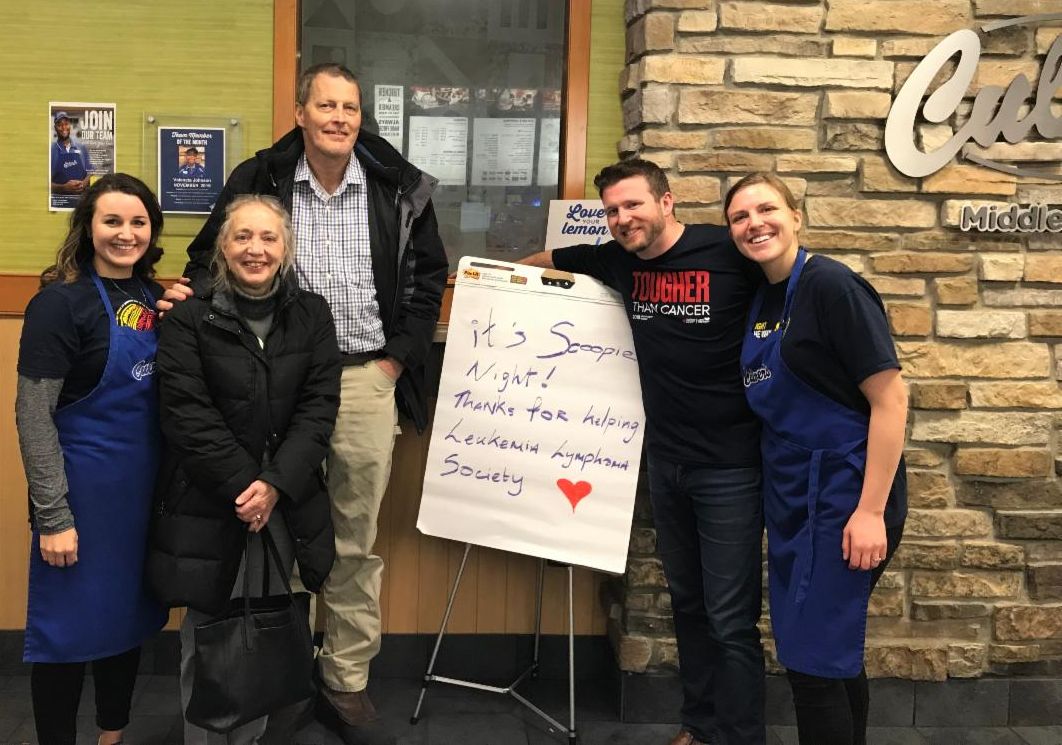 JOIN
OUR TEAM
Team Member
OF THE MONTH
Valencia Johnson
NOVEMBER
Love
YOUR
lemon
ALWAYS
it's Scoopie
Night!
THANKS FOR Helping
Leukemia Lymphoma
Society
TOUGHER
THAN CANCER
Culver's
Cul
Middle